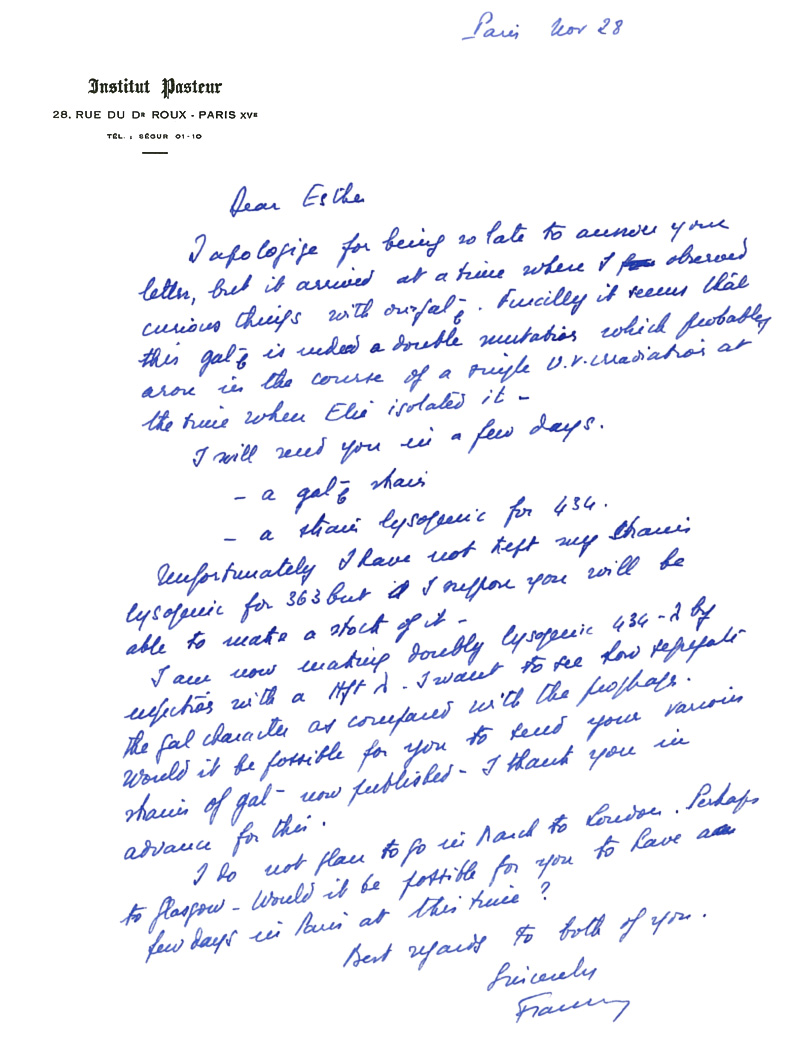 Paris Nov 28
Institut Pasteur
28, RUE DU Dr ROUX - PARIS XVe
TÉL. : SÉGUR 01-10
Dear Esther
I apologize for being so late to answer your
letter, but it arrived at a time where I observed
curious things with our gal-. Finally it seems that
this gal- is indeed a double mutation which probably
arose in the course of a single U.V. irradiation at
the time when Elie isolated it -
I will send you in a few days.
- a gal- strain
- a strain lysogenic for 434.
Unfortunately I have not kept my strains
lysogenic for 363 but I suppose you will be
able to make a stock of it -
I am now making doubly lysogenic 434-λ by
infection with a Hft λ. I want to see how segregate
the gal character as compared with the prophage.
Would it be possible for you to send your various
strains of gal- now published - I thank you in
advance for this.
I do not plan to go in March to London. Perhaps
to Glasgow - Would it be possible for you to have a
few days in Paris at this time ?
Best regards to both of you.
Sincerely